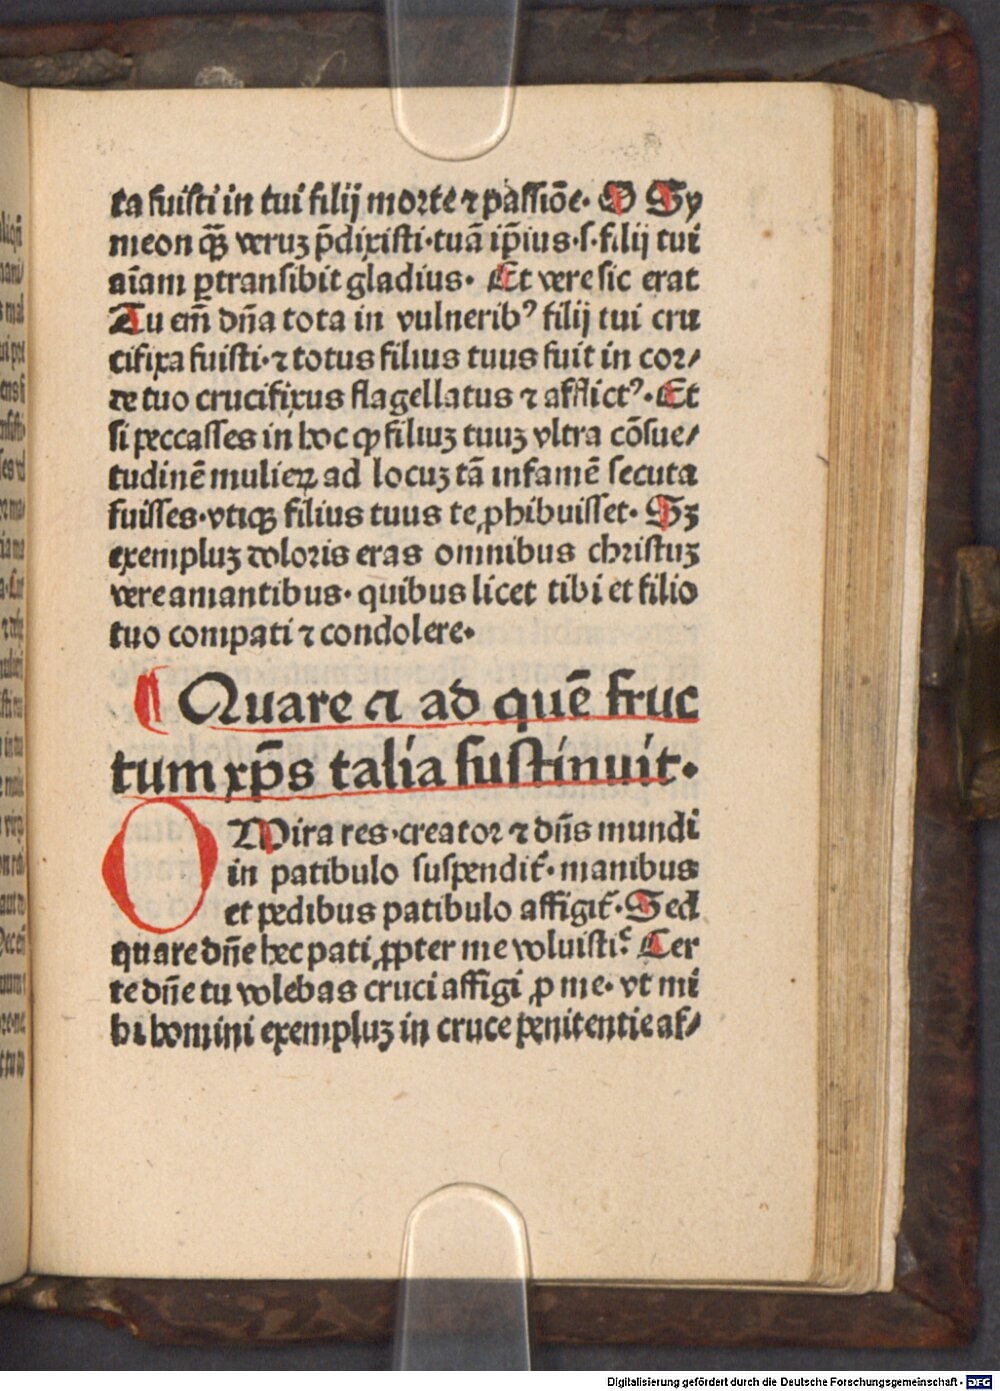 ta fuisti in tui filij morte ⁊ passiõe. O Sy
meon q̃ꝫ veruꝫ p̃dixisti·tuã ip̃ius·s·filij tui
aĩam ꝑtransibit gladius. Et vere sic erat
Tu em̃ dña tota in vulneribꝰ filij tui cru
cifixa fuisti·⁊ totus filius tuus fuit in cor/
de tuo crucifixus flagellatus ⁊ afflictꝰ. Et
si peccasses in hoc ꝙ filiuꝫ tuuꝫ vltra cõsue/
tudinẽ mulieꝝ ad locuꝫ tã infamẽ secuta
fuisses·vtiqꝫ filius tuus te ꝓhibuisset. Sꝫ
exempluꝫ doloris eras omnibus christuꝫ
vere amantibus· quibus licet tibi et filio
tuo compati ⁊ condolere.
¶ Quare ⁊ ad quẽ fruc
tum xp̃s talia sustinuit.
O Mira res·creator ⁊ dñs mundi
in patibulo suspendit̃· manibus
et pedibus patibulo affigit̃· Sed
quare dñe hec pati ꝓpter me voluisti? Cer
te dñe tu volebas cruci affigi ꝓ me· vt mi
hi homini exempluꝫ in cruce penitentie af/
Digitalisierung gefördert durch die Deutsche Forschungsgemeinschaft - DFG